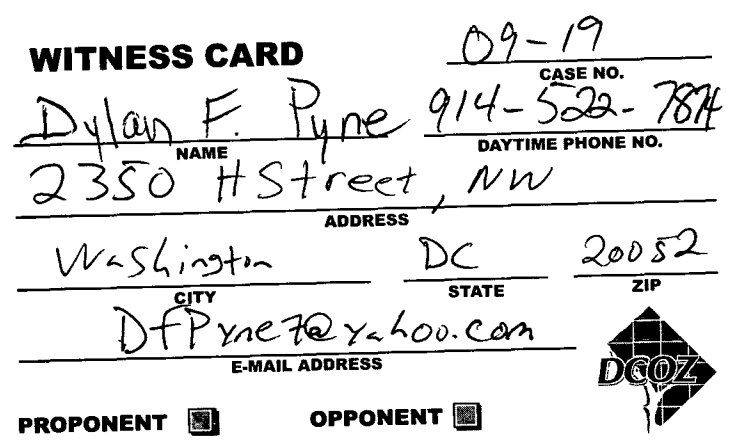 WITNESS CARD
09-19
CASE NO.
Dylan F. Pyne 914-522-7874
NAME DAYTIME PHONE NO.
2350 H Street, NW
ADDRESS
Washington DC 20052
CITY STATE ZIP
DfPyne7@yahoo.com
E-MAIL ADDRESS
DCOZ
PROPONENT OPPONENT